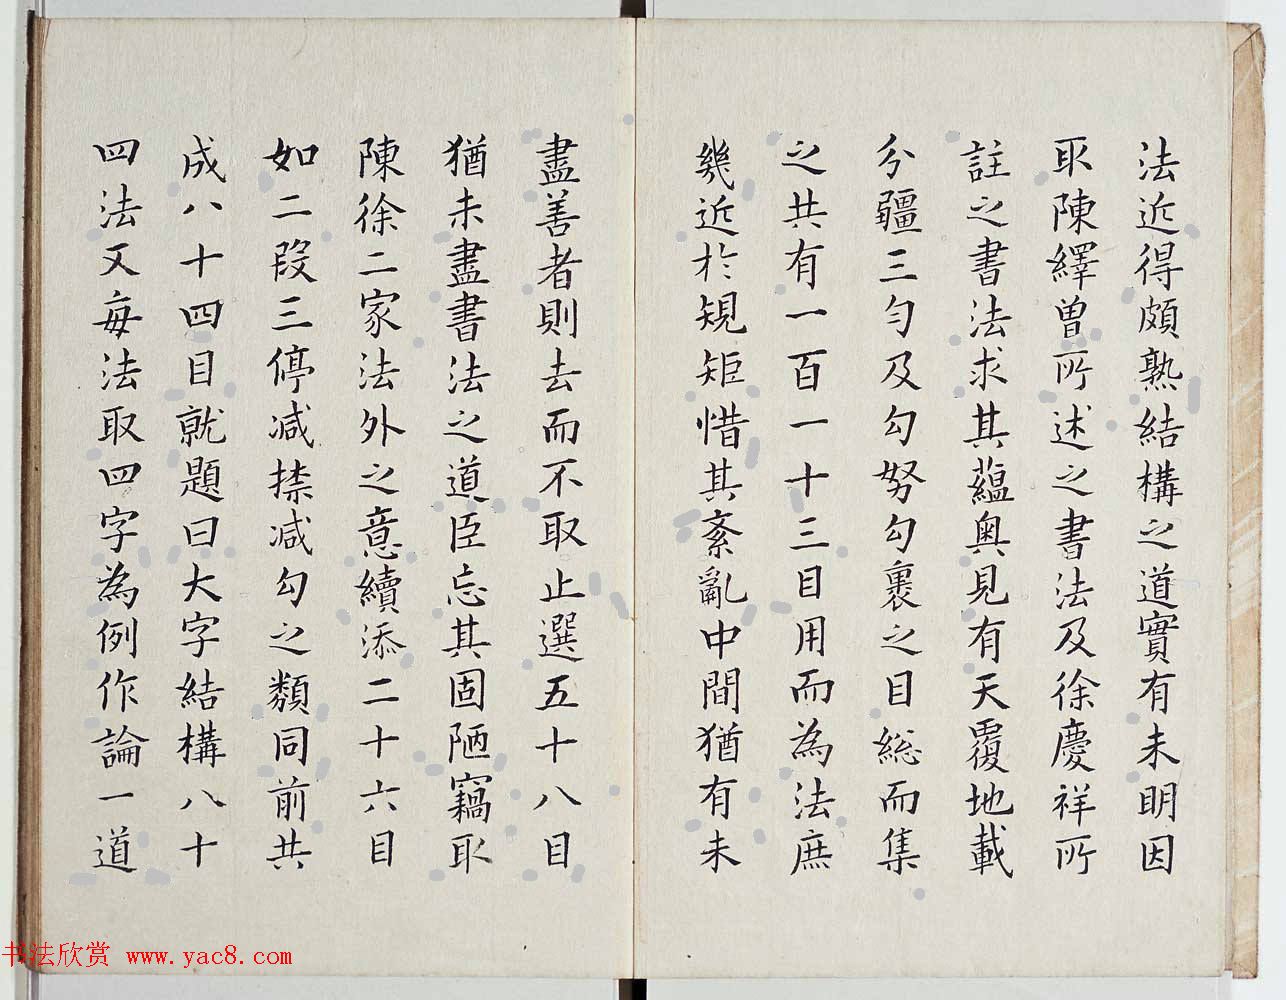 法近得頗熟結構之道實有未明因
取陳繹曾所述之書法及徐慶祥所
註之書法求其蘊奧見有天覆地載
分疆三勻及勾努勾裹之目総而集
之共有一百一十三目用而為法庶
幾近於規矩惜其紊亂中間猶有未
盡善者則去而不取止選五十八目
猶未盡書法之道臣忘其固陋竊取
陳徐二家法外之意續添二十六目
如二段三停减捺减勾之類同前共
成八十四目就題曰大字結構八十
四法又每法取四字為例作論一道
书法欣赏 www.yac8.com